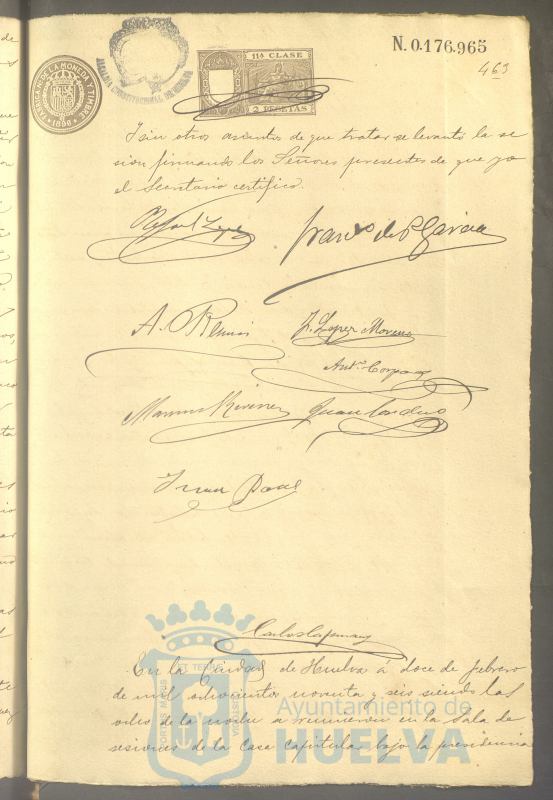 N. 0.176.965
463
FABRICA N. DE LA MONEDA Y TIMBRE
1896
ALCALDIA CONSTITUCIONAL DE HUELVA
11ª CLASE
2 PESETAS
Y sin otros asuntos de que tratar se levantó la se
sion, firmando los Señores presentes de que yo
el Secretario certifico.
Rafael Lopez
Franco de P. Garcia
A.
J. Lopez Moreno
Antº.
Juan
Juan
Carlos
En la Ciudad de Huelva á doce de febrero
de mil ochocientos noventa y seis siendo las
ocho de la noche se reunieron en la Sala de
sesiones de la Casa capitular bajo la presidencia
Ayuntamiento de
HUELVA
PORTUS MARIS ET TERRAE CUSTODIA